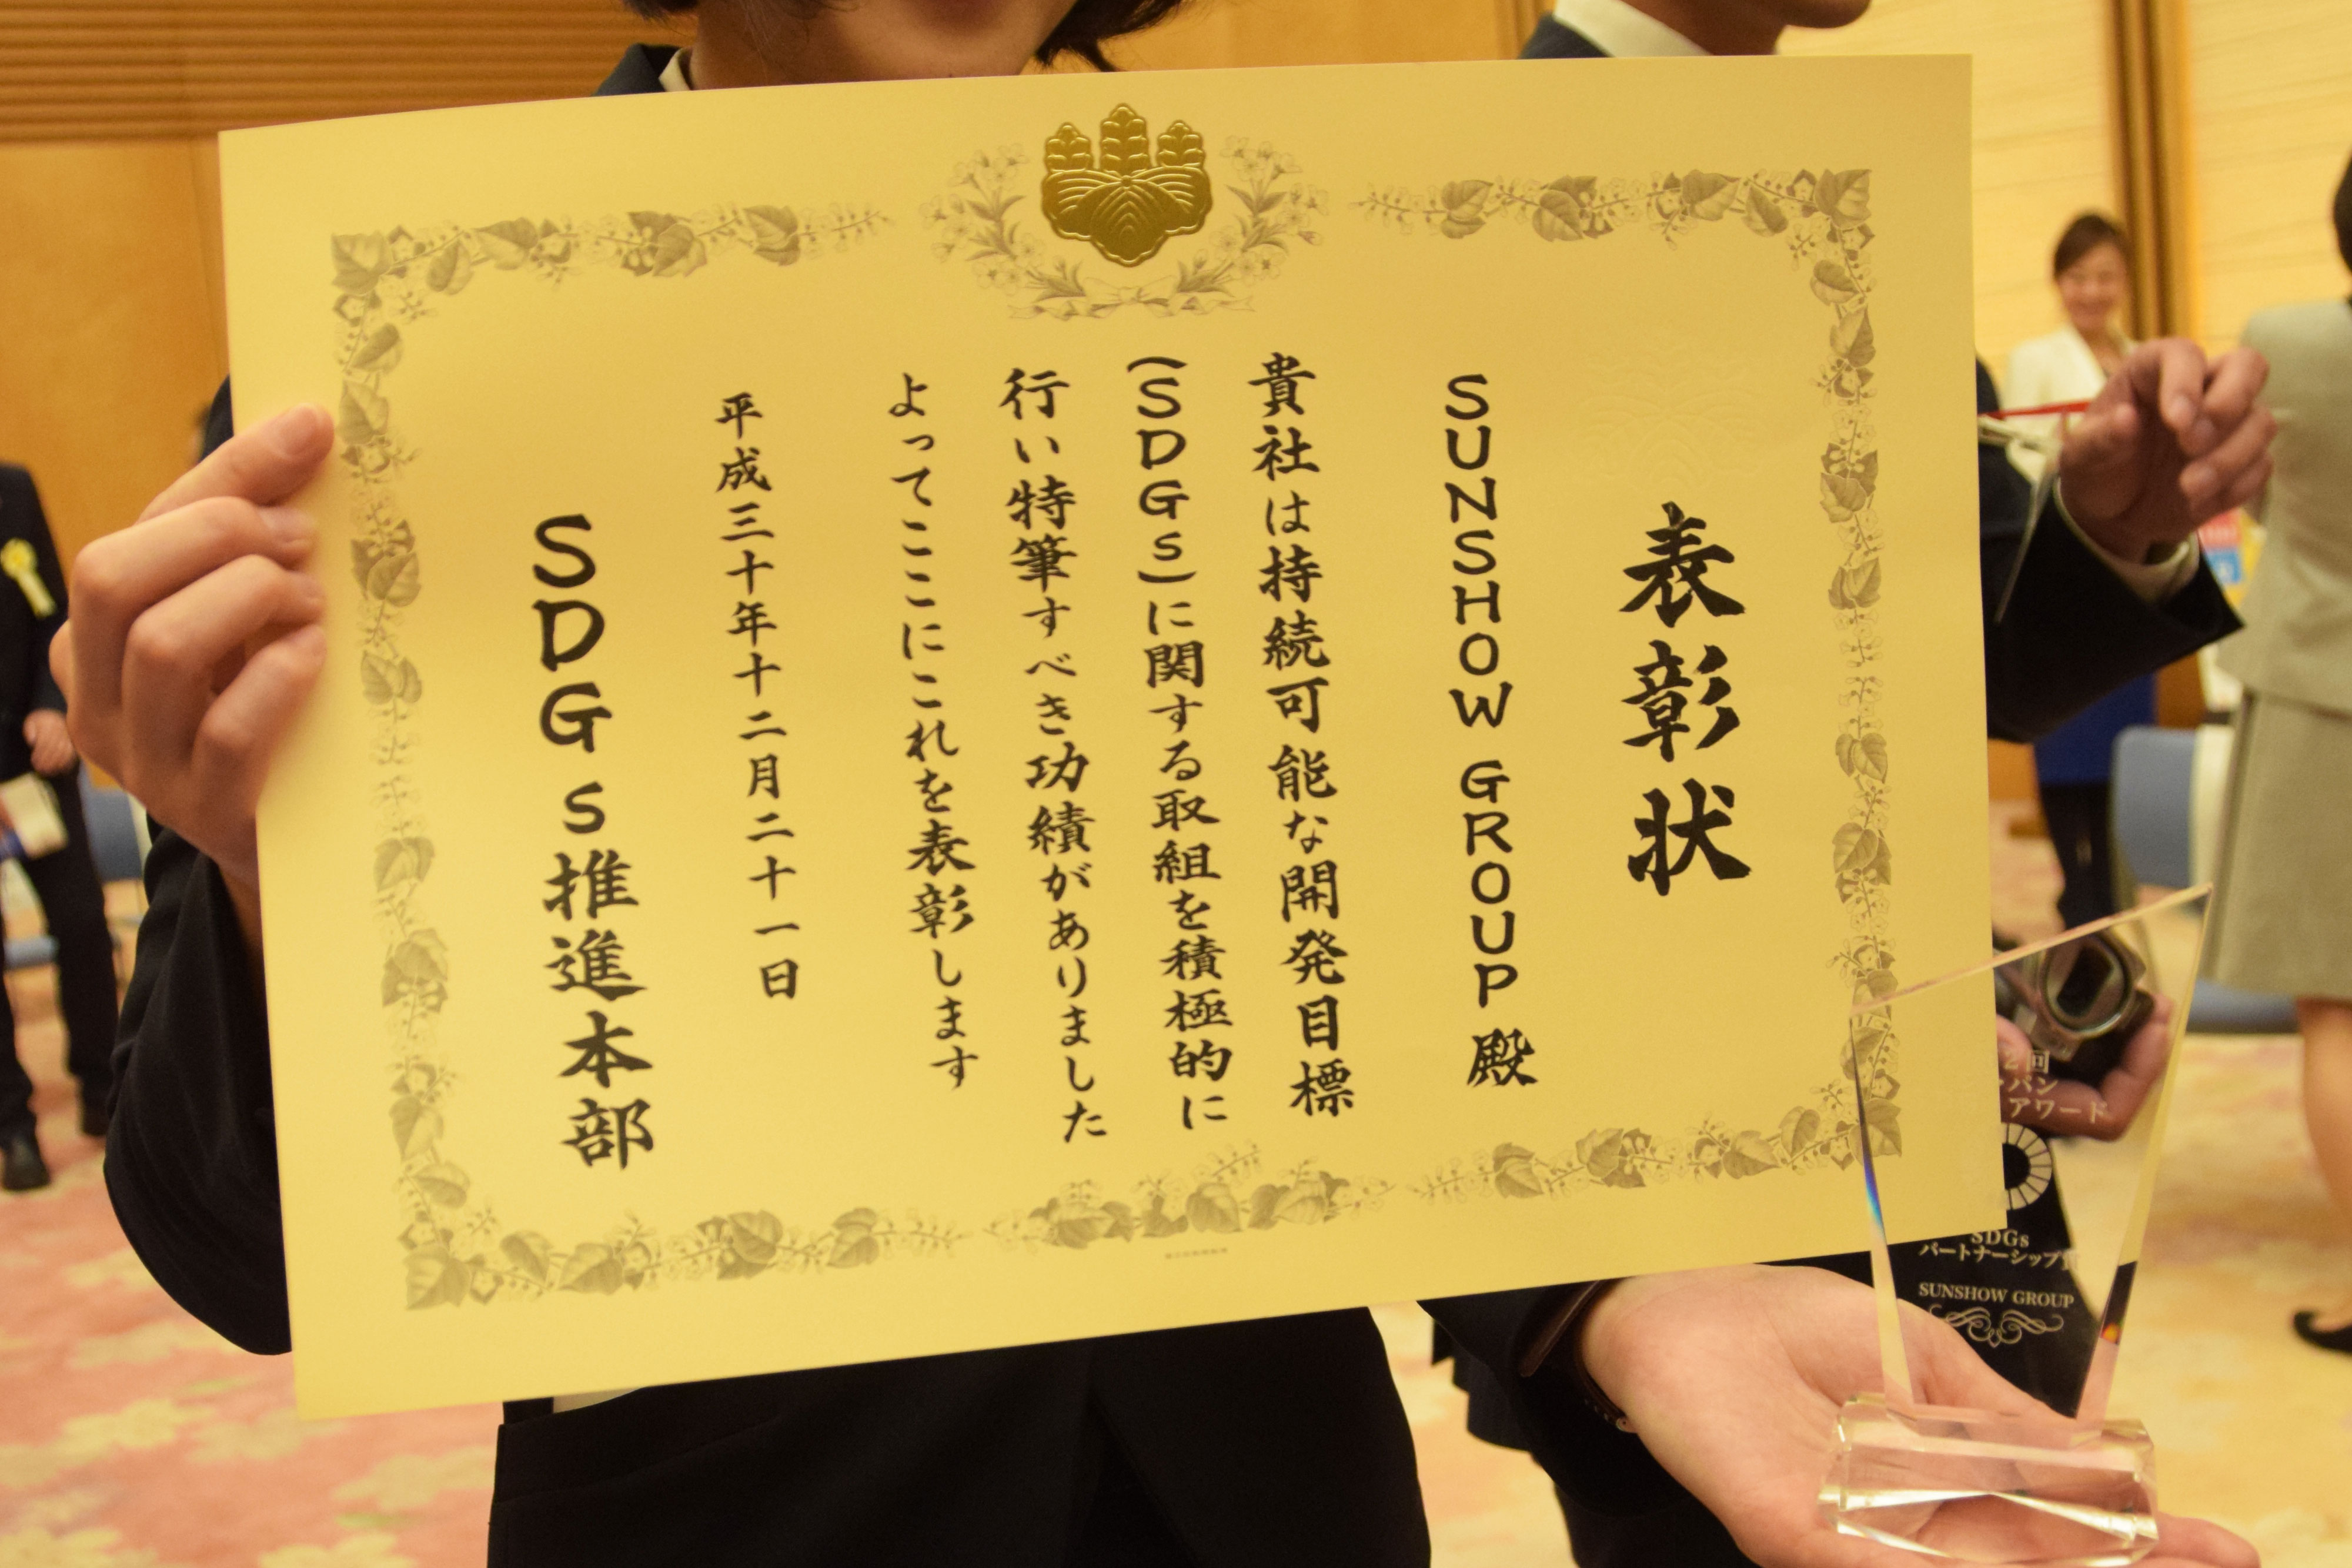 表彰状
SUNSHOW GROUP 殿
貴社は持続可能な開発目標
(SDGs)に関する取組を積極的に
行い特筆すべき功績がありました
よってここにこれを表彰します
平成三十年十二月二十一日
SDGs推進本部
2回
パン
アワード
SDGs
パートナーシップ
SUNSHOW GROUP